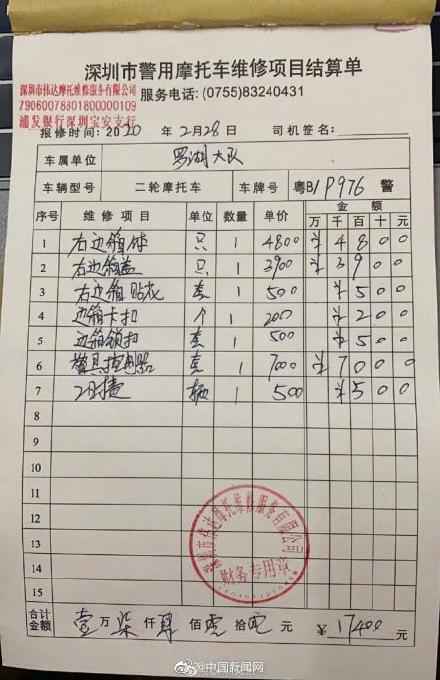 深圳市警用摩托车维修项目结算单
深圳市伟达摩托维修服务有限公司
79060078801800000109
浦发银行深圳宝安支行
服务电话: (0755)83240431
报修时间: 2020 年 2月28日 司机签名:
车属单位 罗湖大队
车辆型号 二轮摩托车 车牌号 粤B1P976 警
序号 维修项目 单位 数量 单价 金额
万 千 百 十 元
1 右边箱体 只 1 4800 ¥ 4 8 0 0
2 右边箱盖 只 1 3900 ¥ 3 9 0 0
3 右边箱贴花 套 1 500 ¥ 5 0 0
4 边箱卡扣 个 1 200 ¥ 2 0 0
5 边箱锁扣 套 1 500 ¥ 5 0 0
6 警具控制器 套 1 7000 ¥ 7 0 0 0
7 工时费 辆 1 500 ¥ 5 0 0
8
9
10
11
12
13
14
15
深圳市伟达摩托维修服务有限公司
财务专用章
合计金额 壹 万 柒 仟 肆 佰 零 拾 零 元 ¥ 17400
@中国新闻网